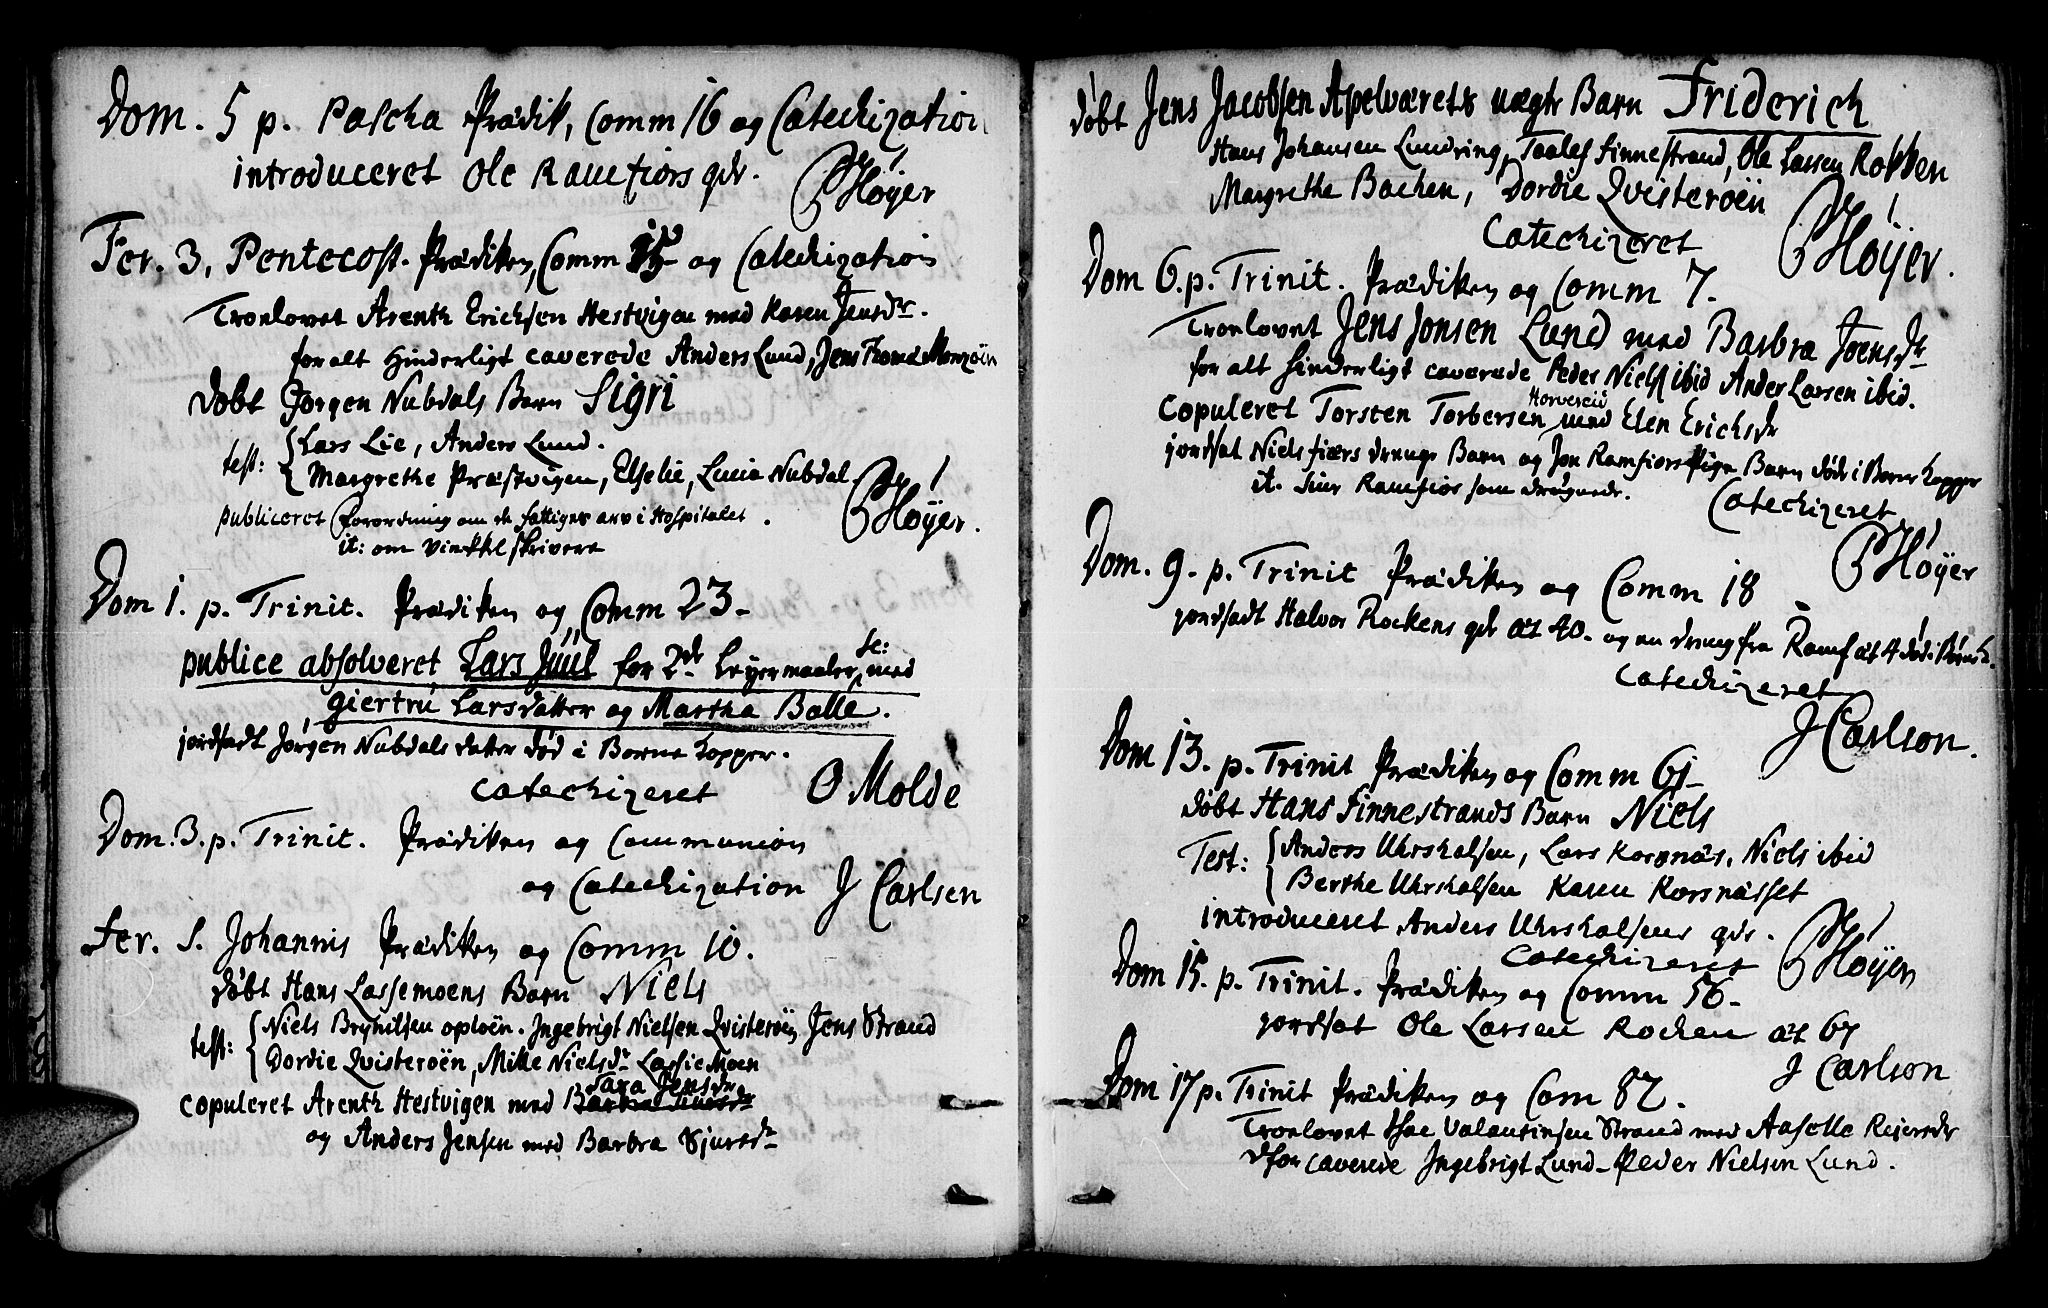 Dom. 5 p. Pascha Prædik, Comm 16 og Catechization
introduceret Ole Ramfiors qdr.
PHøyer
Fer. 3, Pentecost. Prædiken, Comm 15 og Catechization
Troelovet Arenth Erichsen Hestvigen med Karen Jensdr.
for alt Hinderligt caverede Anders Lund, Jens
Døbt Jørgen Nubdals Barn Sigri
test: Lars Lie, Anders Lund.
Margrethe Præstvigen, Else Lie, Lucia Nubdal
PHøyer.
publiceret forordning om de fattiges arv i Hospitalet.
it: om Vinkkelskrivere
Dom 1. p. Trinit. Prædiken og Comm 23-
publice absolveret Lars Juul for 2de Leyermaaler, sc: med
giertru Larsdatter og Martha Balle.
jordsadt Jørgen Nubdals datter død i Borne kopper.
Catechizeret O Molde
Dom. 3. p. Trinit. Prædiken og Communion
og Catechization J Carlsen
Fer. S. Johannis Prædiken og Comm 10.
døbt Hans Lassemoens Barn Niels
test: Niels Brynilsen oploën. Ingebrigt Nielsen Qvisterøen, Jens Strand
Dordie Qvisterøën, Mille Nielsdr Lassiemoen
Sara Jensdr
copuleret Arenth Hestvigen med Barbra
og Anders Jensen med Barbra Sjursdr
døbt Jens Jacobsen Apelværets uægte Barn Friderich
Hans Johansen Lundring, Taales Finnestrand, Ole Larsen Rokken
Margrethe Bachen, Dordie Qvisterøen
Catechizeret PHøyer.
Dom 6. p. Trinit. Prædiken og Comm 7.
Troelovet Jens Jonsen Lund med Barbra Joensdr
for alt hinderligt caverede Peder Niels ibid Anders Larsen ibid.
Horvereid
copuleret Torsten Torbersen med Elen Erichsdr
jordsat Niels fiærs drengs Barn og Jon Ramfiors Pige Barn døde i Borne kopper
it. Ramfior som druknede.
Catechizeret
PHøyer
Dom. 9. p. Trinit Prædiken og Comm 18
jordsadt Halvor Rockens qdr æt 40. og en dreng fra Ramf æt 4 død i Børnek.
Catechizeret
J Carlson.
Dom 13. p. Trinit Prædiken og Comm 61-
døbt Hans Finnestrands Barn Niels
Test: Anders Uhrshalsen, Lars Korsnæs, Niels ibid
Berthe Uhrshalsen Karen Korsnæsset
introduceret Anders Uhrshalsens qdr.
Catechizeret PHøyer
Dom 15. p. Trinit. Prædiken og Comm 56-
jordsat Ole Larsen Rochen æt 67
J Carlson
Dom 17 p. Trinit Prædiken og Com 87.
Troelovet Isac Valentinsen Strand med Aaselle Reiersdr
dfor caverede Ingebrigt Lund- Peder Nielsen Lund.